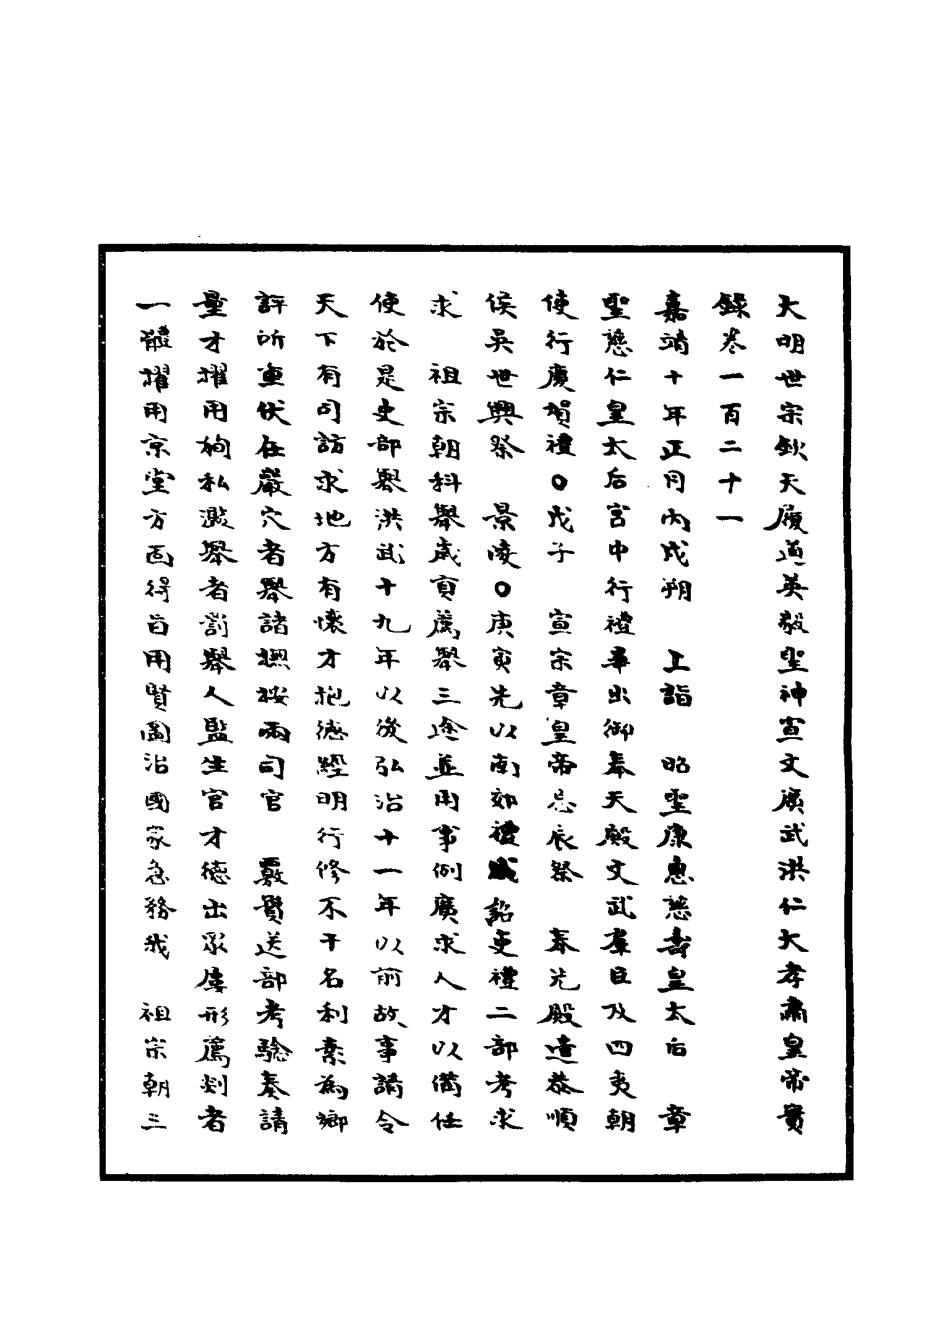 大明世宗欽天履道英毅聖神宣文廣武洪仁大孝肅皇帝實
錄卷一百二十一
嘉靖十年正月丙戌朔　上詣　昭聖康惠慈壽皇太后　章
聖慈仁皇太后宮中行禮畢出御奉天殿文武羣臣及四夷朝
使行慶賀禮○戊子　宣宗章皇帝忌辰祭　奉先殿遣恭順
侯吳世興祭　景陵○庚寅先以南郊禮成詔吏禮二部考求
求　祖宗朝科舉歲貢薦舉三途並用事例廣求人才以備任
使於是吏部舉洪武十九年以後弘治十一年以前故事請令
天下有司訪求地方有懷才抱德經明行修不干名利素為鄉
評所重伏在巖穴者舉諸撫按兩司官　覈實送部考驗奏請
量才擢用徇私濫舉者罰舉人監生官才德出眾屢形薦剡者
一體擢用京堂方面得旨用賢圖治國家急務我　祖宗朝三